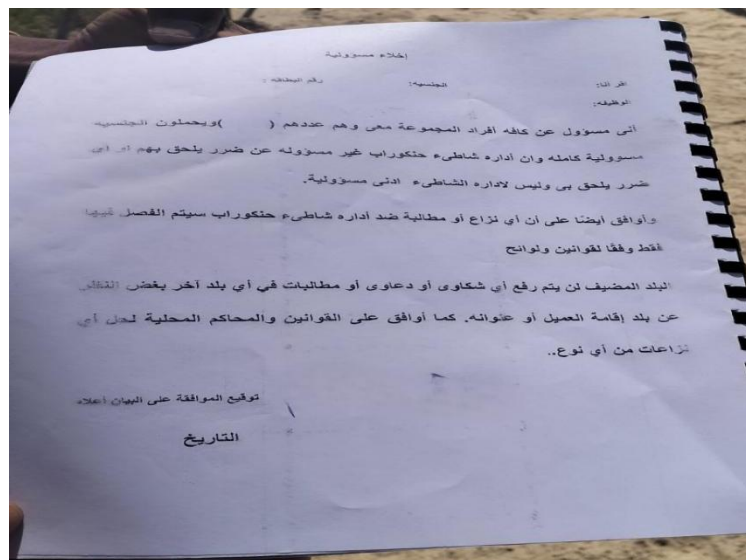 إخلاء مسؤولية
اقر انا: الجنسيه: رقم البطاقه :
الوظيفه:
أنى مسؤول عن كافه أفراد المجموعة معى وهم عددهم ( )ويحملون الجنسيه
مسوولية كامله وان أداره شاطىء حنكوراب غير مسؤوله عن ضرر يلحق بهم او أى
ضرر يلحق بى وليس لاداره الشاطىء ادنى مسؤولية.
وأوافق أيضا على أن أي نزاع أو مطالبة ضد أداره شاطىء حنكوراب سيتم الفصل فيها
فقط وفقا لقوانين ولوائح
البلد المضيف لن يتم رفع أي شكاوى أو دعاوى أو مطالبات في أي بلد آخر بغض النظر
عن بلد إقامة العميل أو عنوانه. كما أوافق على القوانين والمحاكم المحلية لحل أي
نزاعات من أي نوع..
توقيع الموافقة على البيان أعلاه
التاريخ